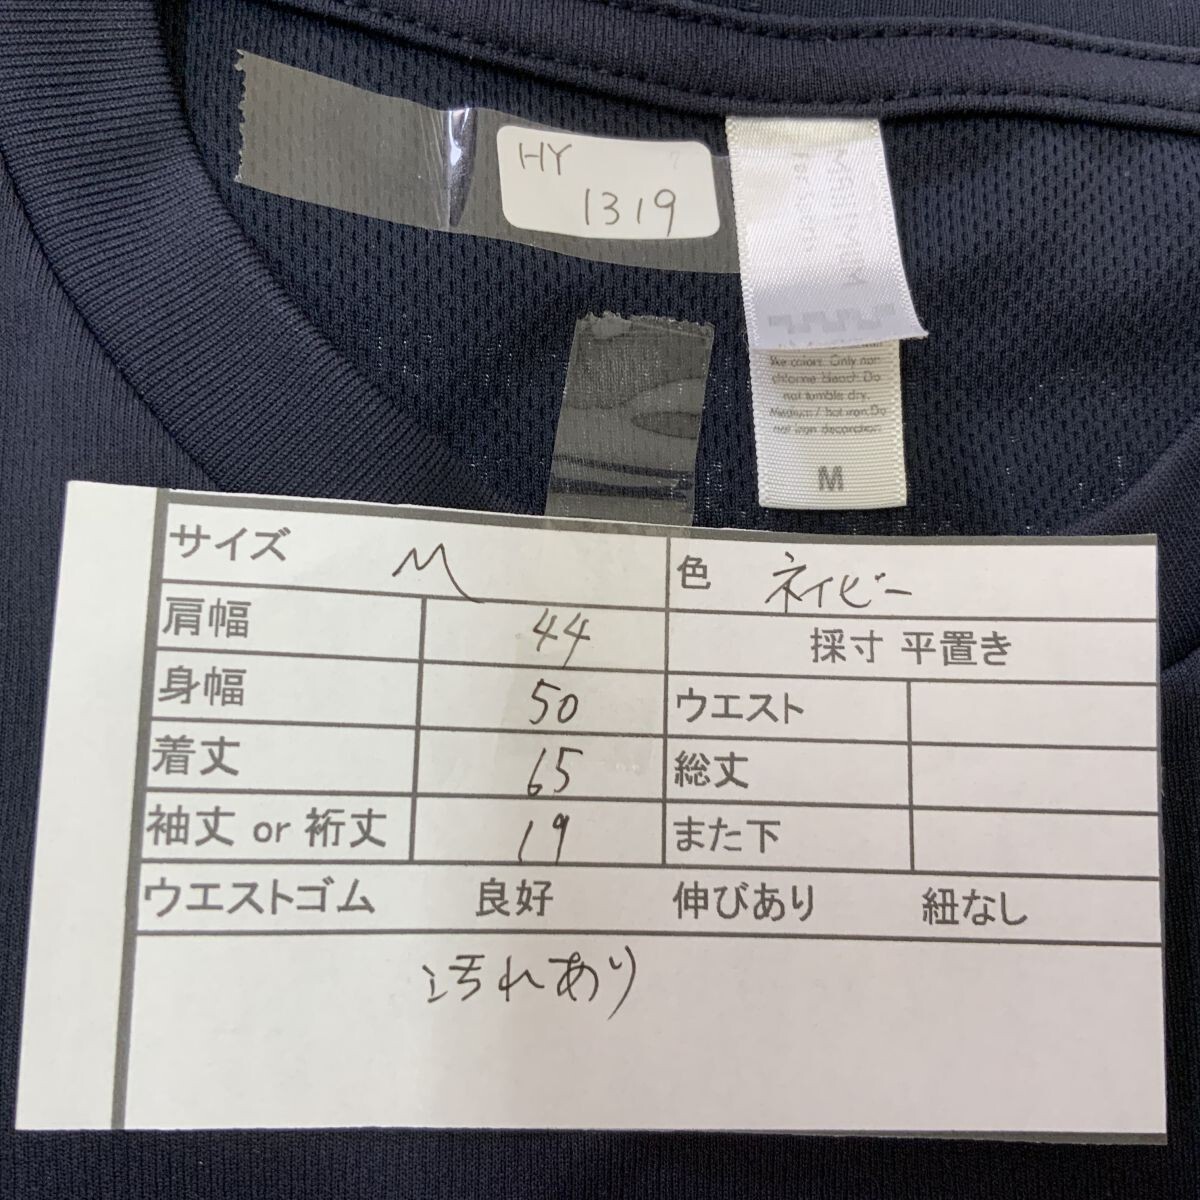 HY
1319
like colors. Only non
chlorine bleach. Do
not tumble dry.
Medium / hot iron. Do
not iron decoration.
M
サイズ M 色 ネイビー
肩幅 44 採寸 平置き
身幅 50 ウエスト
着丈 65 総丈
袖丈 or 裄丈 19 また下
ウエストゴム 良好 伸びあり 紐なし
汚れあり